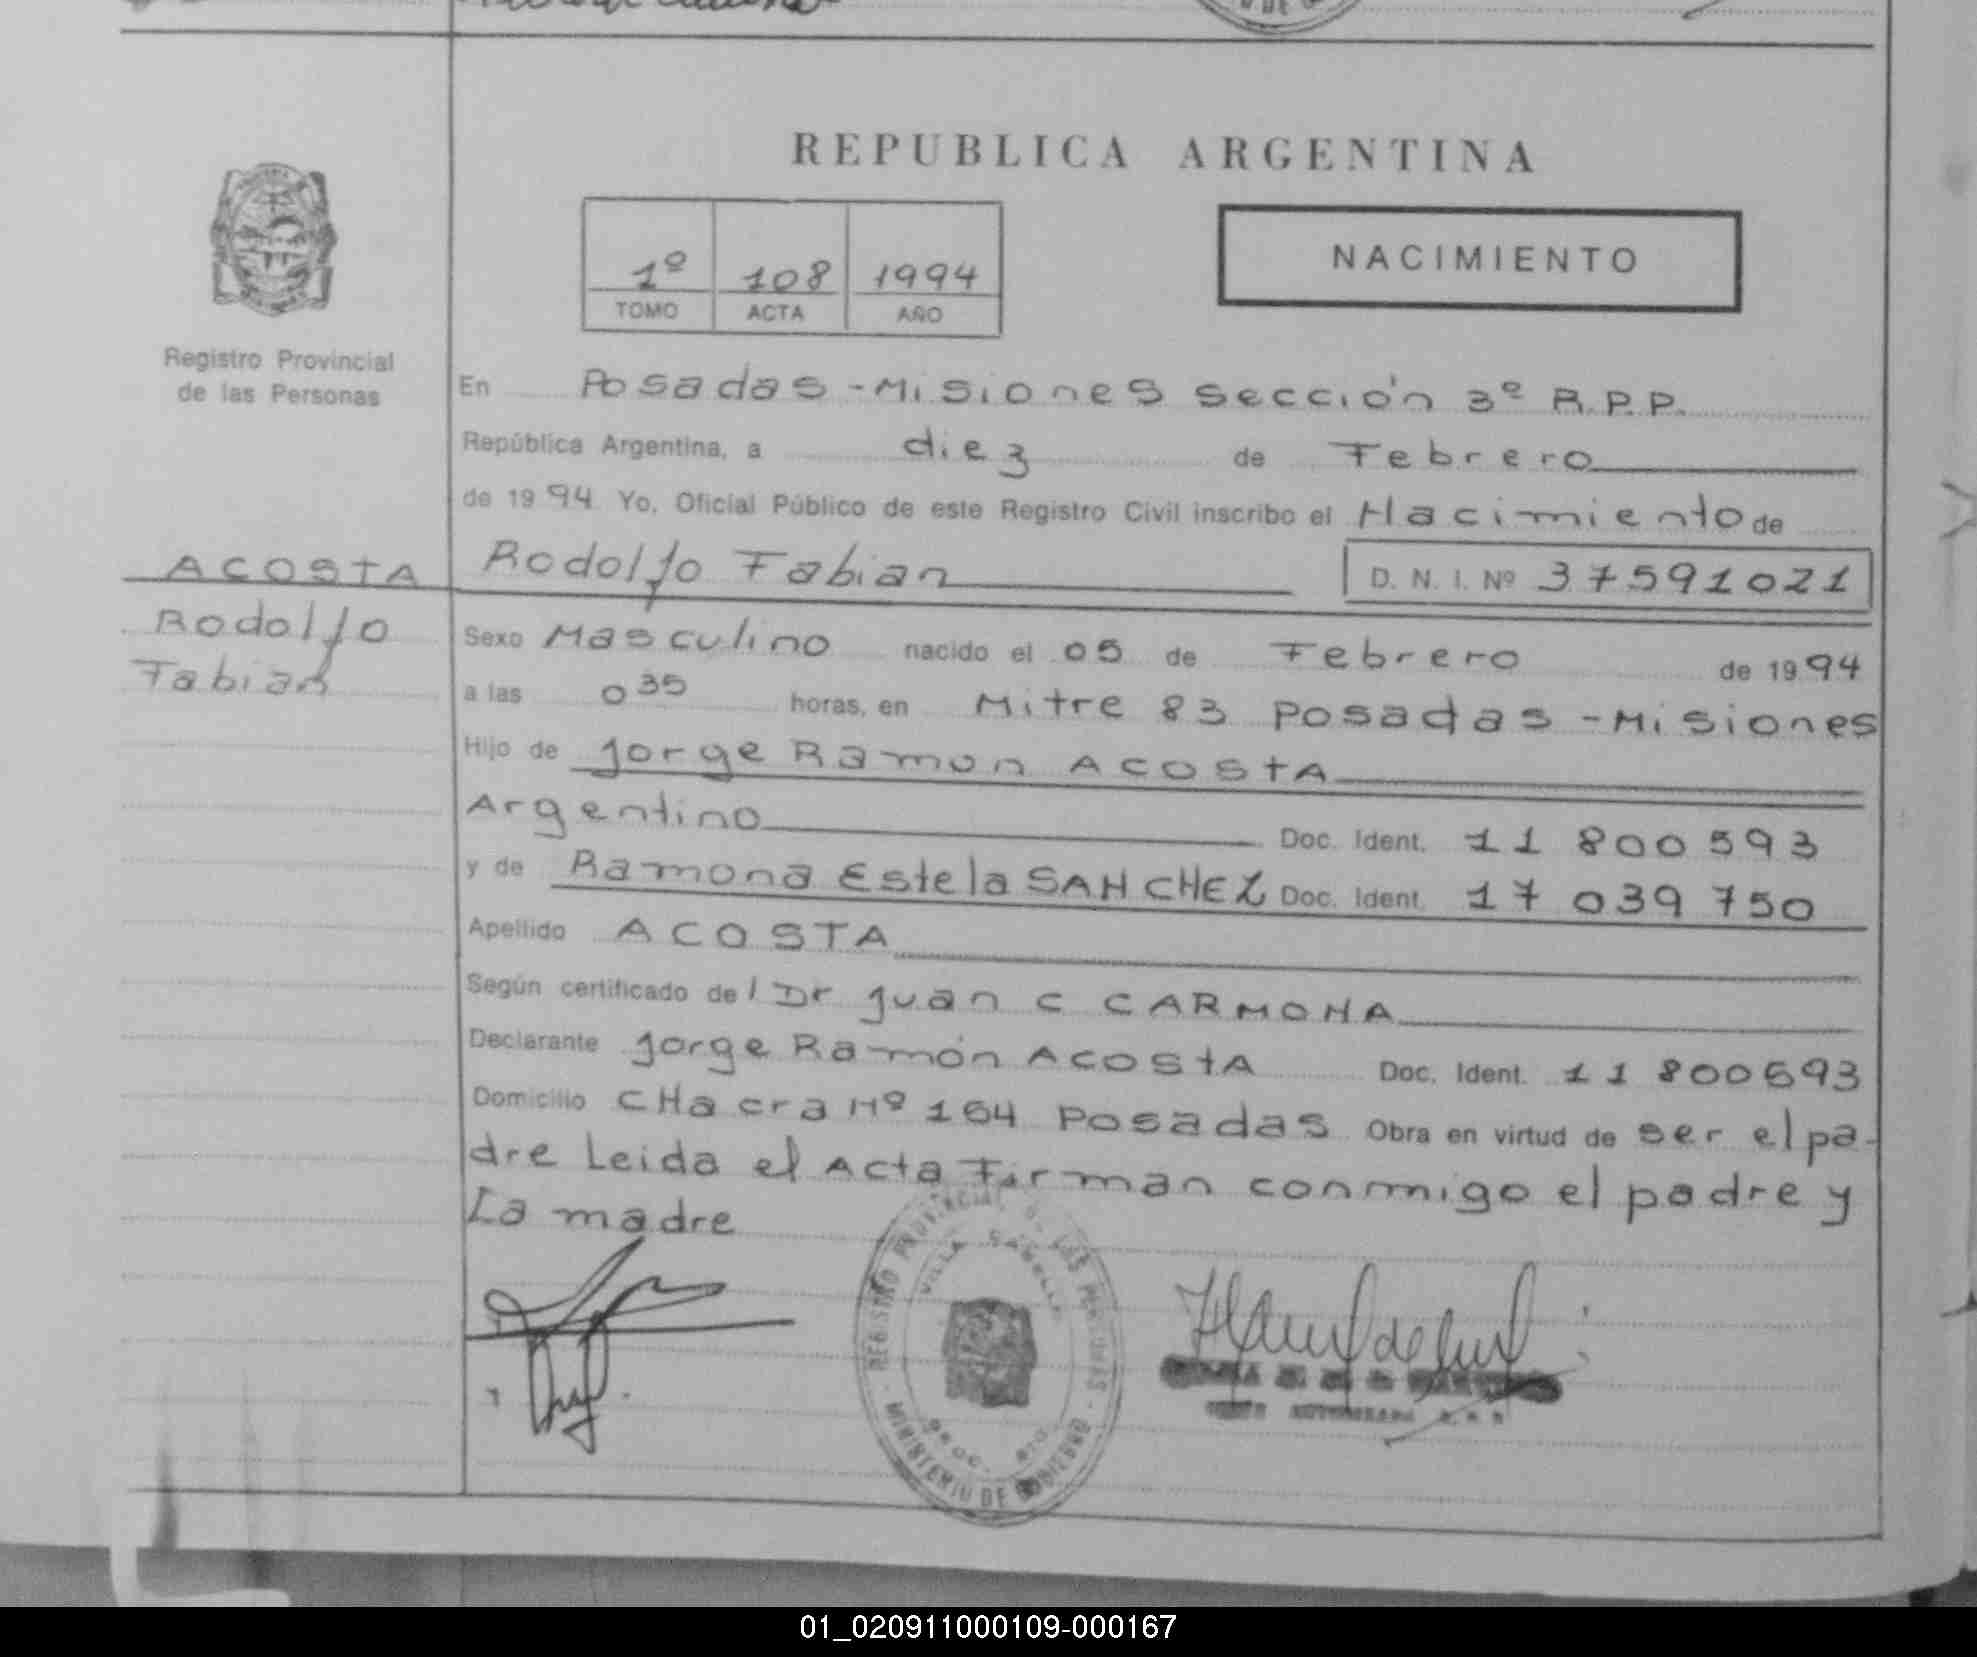 REPUBLICA ARGENTINA
1º 108 1994
TOMO ACTA AÑO
NACIMIENTO
Registro Provincial
de las Personas
En Posadas - Misiones Sección 3º R.P.P.
República Argentina, a diez de Febrero
de 1994 Yo, Oficial Público de este Registro Civil inscribo el Nacimiento de
ACOSTA Rodolfo Fabian D. N. I. Nº 37591021
Rodolfo
Fabian
Sexo Masculino nacido el 05 de Febrero de 1994
a las 0 35 horas, en Mitre 83 Posadas - Misiones
Hijo de Jorge Ramon ACOSTA
Argentino Doc. Ident. 11 800 593
y de Ramona Estela SANCHEZ Doc. Ident. 17 039 750
Apellido ACOSTA
Según certificado de l Dr Juan C CARMONA
Declarante Jorge Ramón ACOSTA Doc. Ident. 11 800 593
Domicilio CHacra Nº 164 Posadas Obra en virtud de ser el pa-
dre Leida el Acta Firman conmigo el padre y
La madre
REGISTRO PROVINCIAL DE LAS PERSONAS
VILLA SARELLI
MINISTERIO DE GOBIERNO
01_020911000109-000167